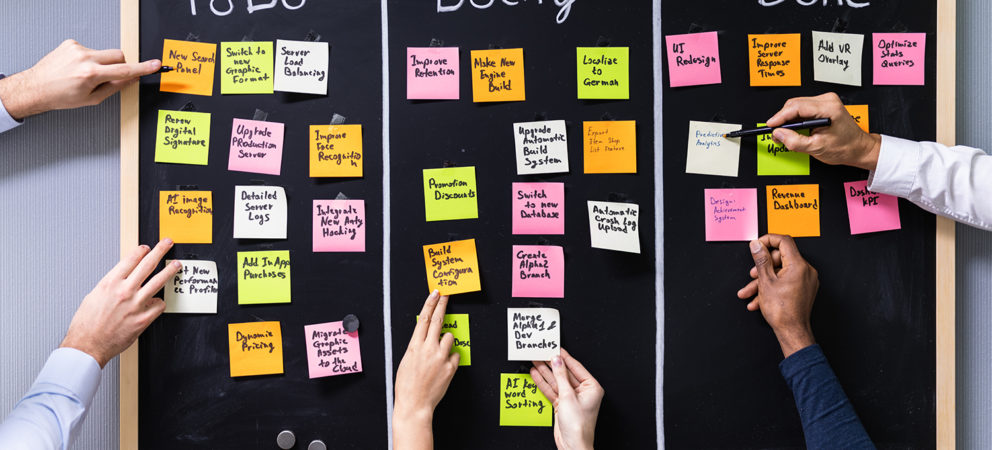 To Do
Doing
Done
New Search
Panel
Switch to
new
Graphic
Format
Server
Load
Balancing
Renew
Digital
Signature
Upgrade
PRoduction
Server
Improve
Face
Recognition
AI image
Recognition
Detailed
Server
Logs
Integrate
New Anty
Hacking
st New
Performan
ce Profiler
Add InApp
Purchases
Dynamic
Pricing
Migrate
Graphic
Assets
to the
Cloud
Improve
Retention
Make New
Engine
Build
Localize
to
German
Upgrade
Automatic
Build
System
Export
Item Shop
List Feature
Promotion
Discounts
Switch
to new
Database
Automatic
Crash Log
Upload
Build
System
Configura
tion
Create
Alpha2
Branch
Merge
Alpha 1 2
Dev
Branches
AI Key
word
Sorting
UI
Redesign
Improve
Server
Response
Times
Add VR
Overlay
Optimize
Stats
Queries
Predictive
Analytics
Upda
Design:
Achievement
System
Revenue
Dashboard
Dash
KPI